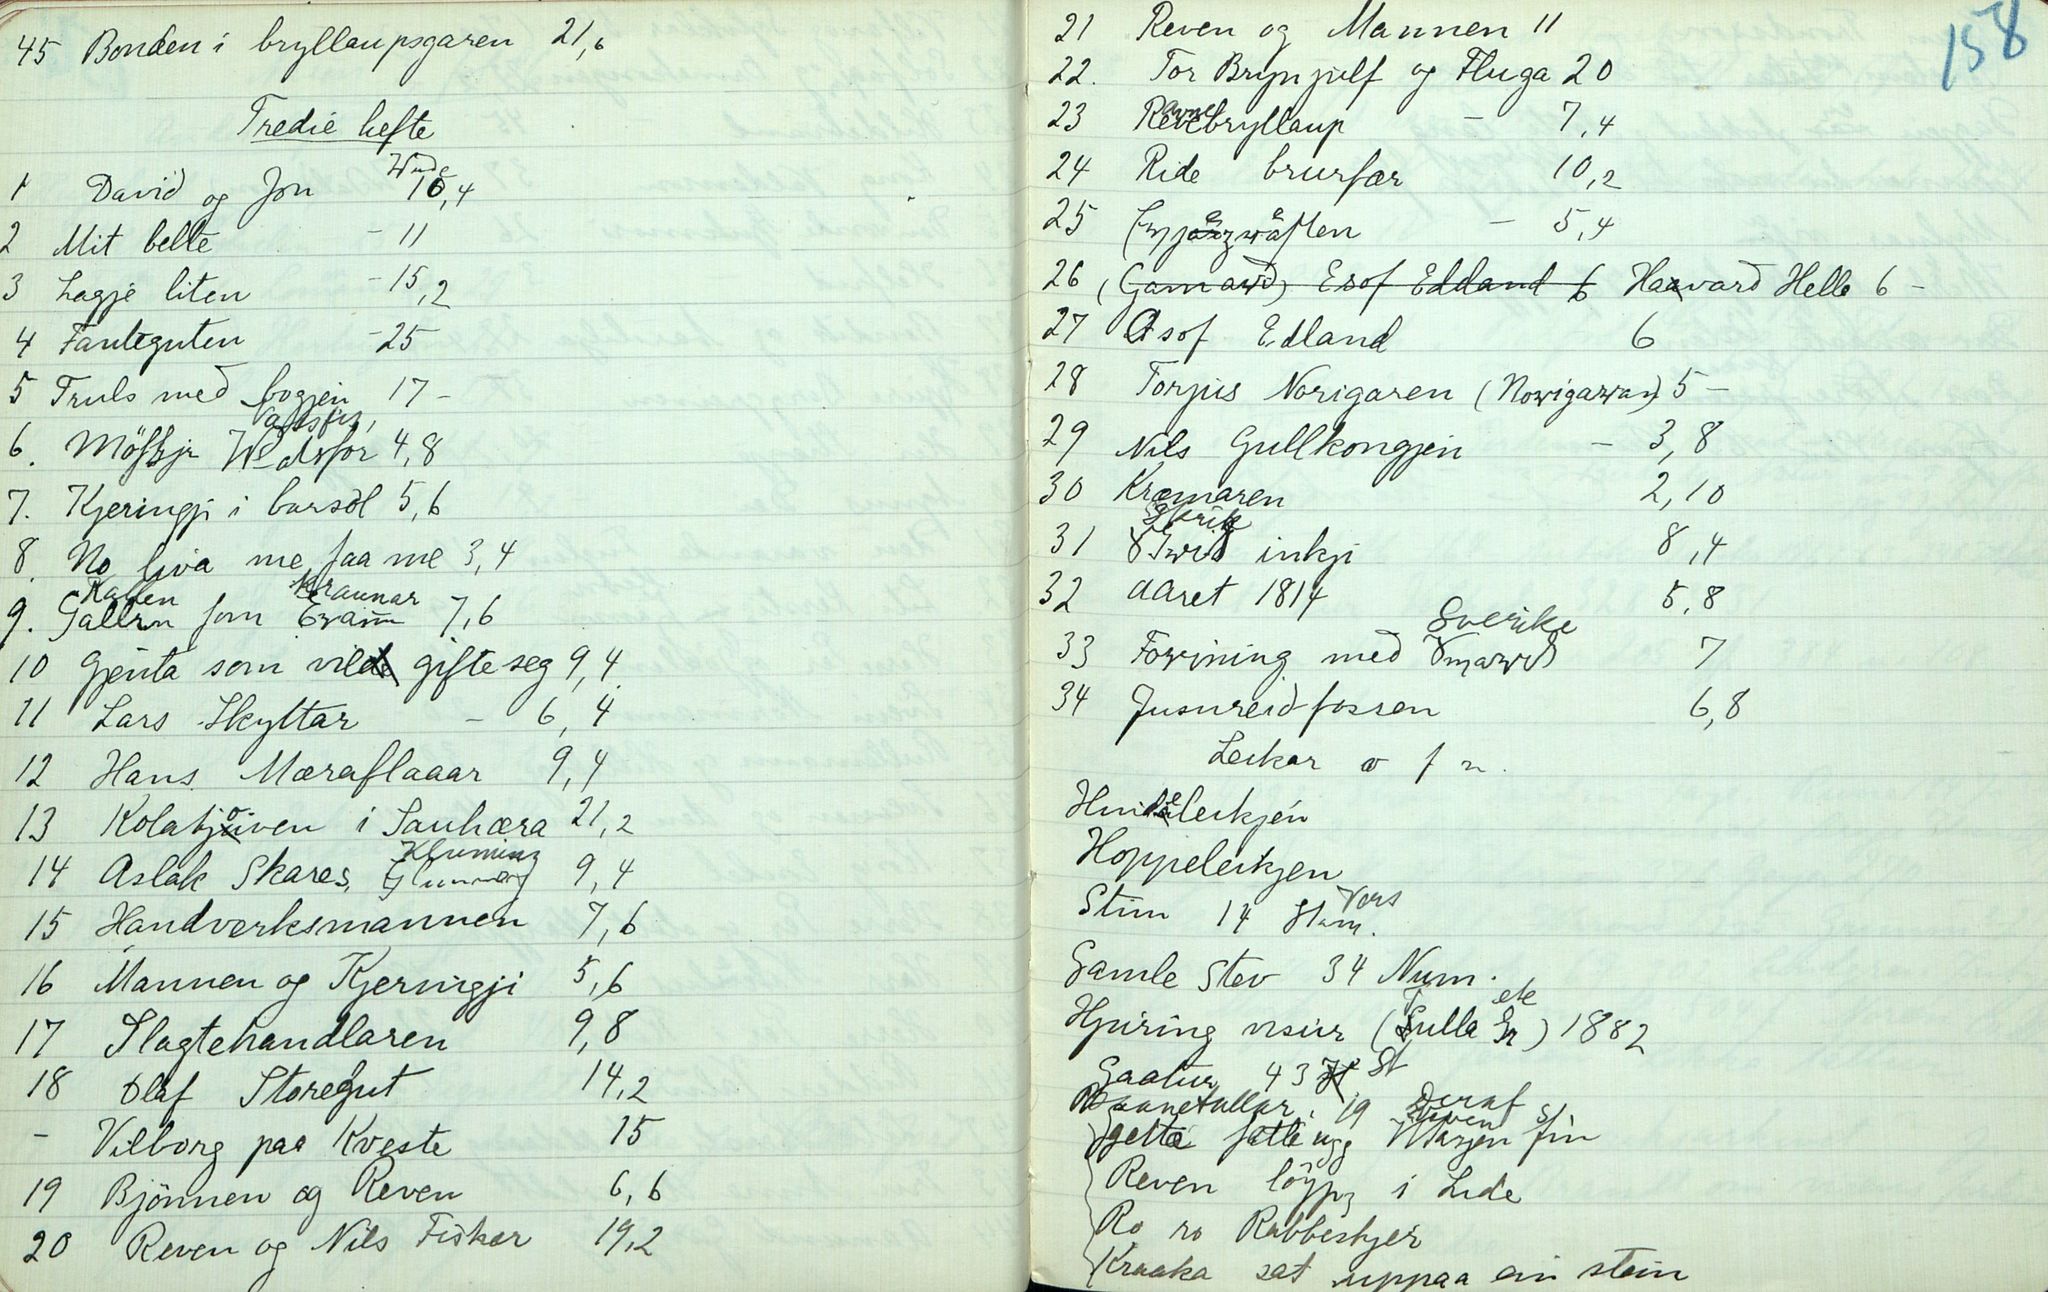 45 Bonden i bryllaupsgaren 21,6
Tredie hefte
1 David og Jon 10,4
2 Mit belte - 11
3 Lagje liten - 15,2
4 Fanteguten - 25
5 Truls med bogjen 17 -
6. 4,8
7. Kjeringji i barsøl 5,6
8. No liva me faa me 3,4
Kallen Kraunar
9. Gallen som 7,6
10 Gjenta som vilde gifte seg 9,4
11 Lars Skyttar - 6,4
12 Hans Mæraflaaar 9,4
13 Kolabjoiven i Sauhæra 21,2
14 Aslak Skares, 9,4
15 Handverksmannen 7,6
16 Mannen og Kjeringji 5,6
17 Slagtehandlaren 9,8
18 Olaf Storegut 14,2
- Vilborg paa Kveste 15
19 Bjönnen og Reven 6,6
20 Reven og Nils Fiskar 19,2
158
21 Reven og Mannen 11
22. Tor Brynjulf og Fluga 20
23 bryllaup - 7,4
24 Ride brurfær 10,2
25 - 5,4
26 Esof Edland 6 Haavard Helle 6 -
27 Asof Edland 6
28 Torjus Norigaren 5 -
29 Nils Gullkongjen - 3,8
30 Kræmaren 2,10
31 inkji 8,4
32 Aaret 1814 5,8
Sverike
33 med 7
34 Jusureidfossen 6,8
Leikar o f n.
Hindeleikjen
Hoppeleikjen
Vers
Stim 14
Gamle Stev 34 Num.
Hjuring visur (Tulla etc) 1882
Gaatur 43 St
Baanetullar. 19 Deraf
Reven i Lide
Ro ro Rabbeskjer
Kraaka sat uppaa ein stein